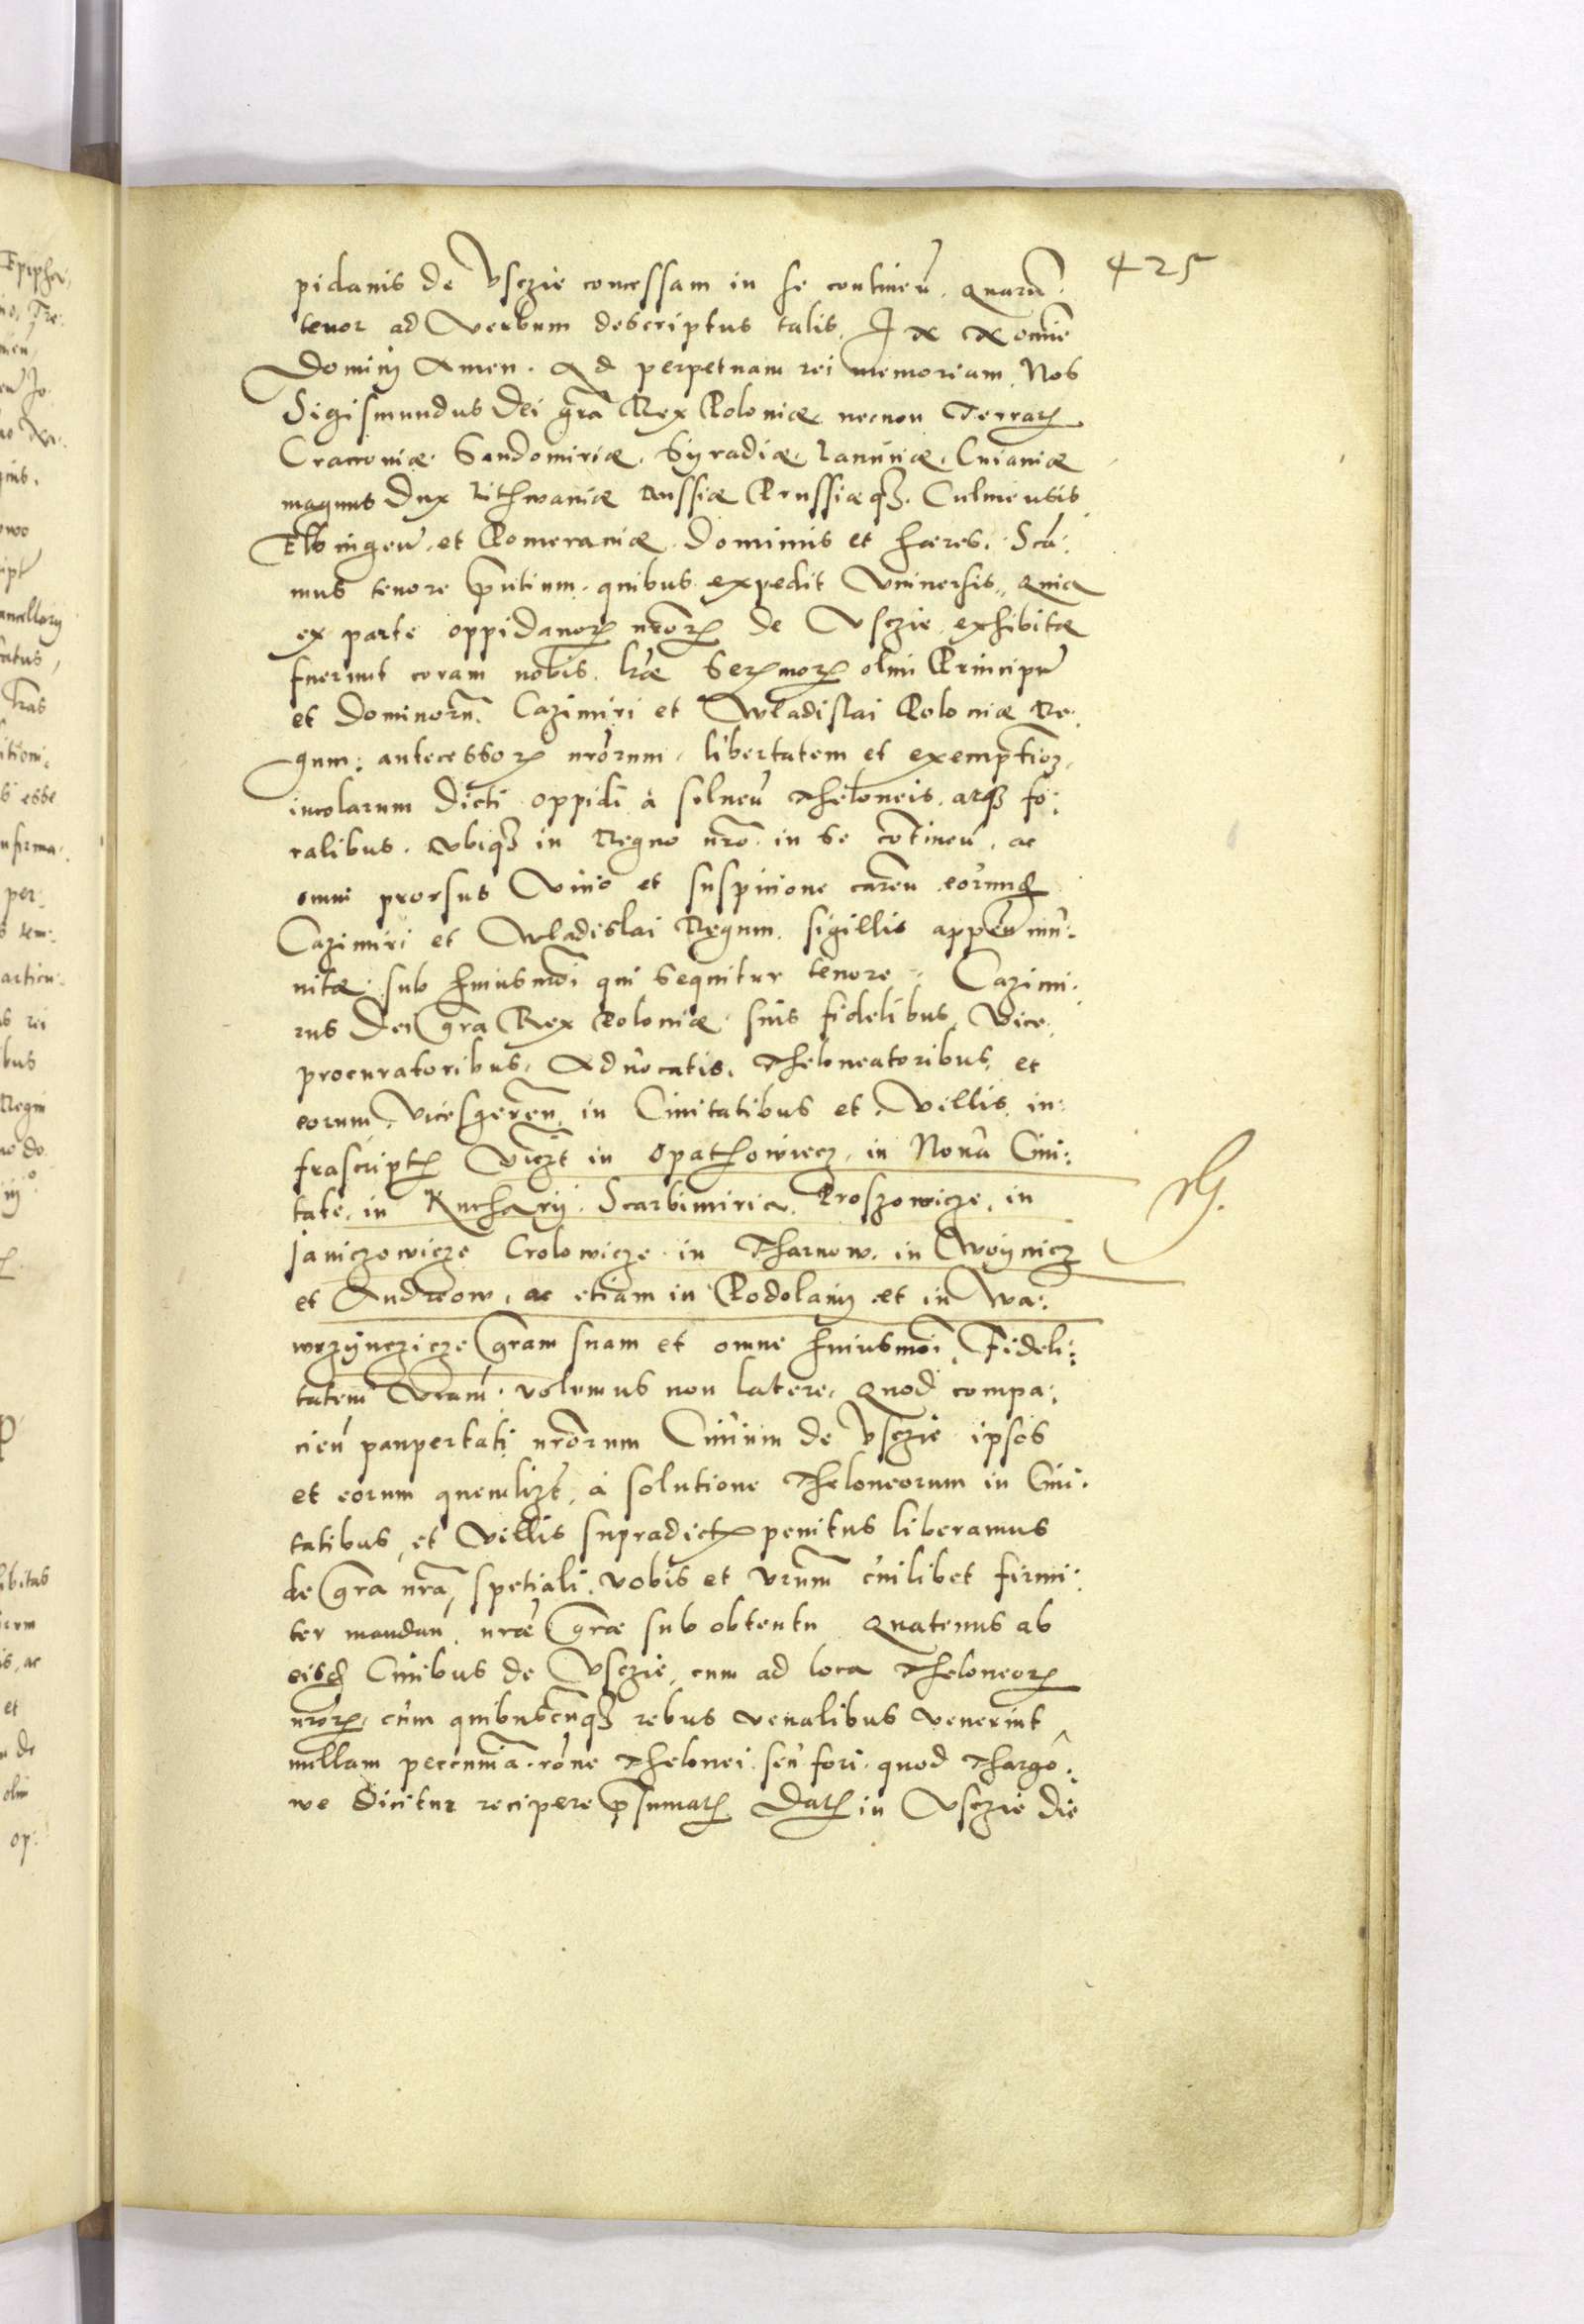 425
pidanis de Usczie concessam in se continen̄. quarū
tenor ad verbum descriptus talis. In Nomine
Dominij Amen. Ad perpetuam rei memoriam. Nos
Sigismundus Dei gr̄a Rex Poloniæ. necnon Terrarꝝ
Cracoviæ. Sandomiriæ. Syradiæ. Lanciciæ. Cuiaviæ
magnus Dux Lithwaniæ Russiæ Prussiæqꝫ. Culmensis
Elbingen̄. et Pomeraniæ Dominus et hæres. Sca:
mus tenore p̄ntium. quibus expedit universis. Quia
ex parte oppidanorꝝ nr̄orꝝ de Usczie exhibitæ
fuerunt coram nobis. lr̄æ Serꝫmorꝝ olim Principū
et Dominorū. Cazimiri et Wladislai Poloniæ Re:
gum: antecessorꝝ nr̄orum, libertatem et exemptioꝫ,
incolarum dicti oppidi à solven̄ Theloneis. atqꝫ fo:
ralibus. ubiqꝫ in Regno nr̄o in se continen̄. ac
omni prorsus vicio et suspicione caren̄ eorundꝫ
Cazimiri et Wladislai Regum. sigillis appen̄ mu:
nitæ. sub huiusmōi qui sequitur tenore. Cazimi:
rus Dei gr̄a Rex Poloniæ. suis fidelibus, Vice:
procuratoribus, Advocatis. Theloneatoribus, et
eorum, vicesgeren̄. in Civitatibus et villis in:
frascriptꝭ viczt in Opathowiecz. in Nova Civi:
tate. in Kucharÿ. Scarbimiria. Proszowicze. in
Janiczowicze Crolowicze in Tharnow. in Woÿnicz
et Andreow, ac etiam in Podolanÿ et in Wa:
wrzÿnczicze gr̄am suam et omne huiusmōi. Fideli:
tatem vr̄am. volumus non latere. Quod compa:
cien̄ paupertati nr̄orum Civium de Usczie ipsos
et eorum quemlizt, à solutione Theloneorum in Civi:
tatibus, et villis supradictꝭ penitus liberamus
de gr̄a nr̄a, spetiali. vobis et vr̄um cuilibet firmi:
ter mandan̄. nr̄æ gr̄æ sub obtentu Quatenus ab
eisdꝫ Civibus de Usczie, cum ad loca Theloneorꝝ
nr̄orꝝ, cum quibuscunqꝫ rebus venalibus venerint
nullam peccuniā. rōne Thelonei. seu fori. quod Thargo:
we dicitur recipere p̄sumatꝭ Datꝭ in Usczie die